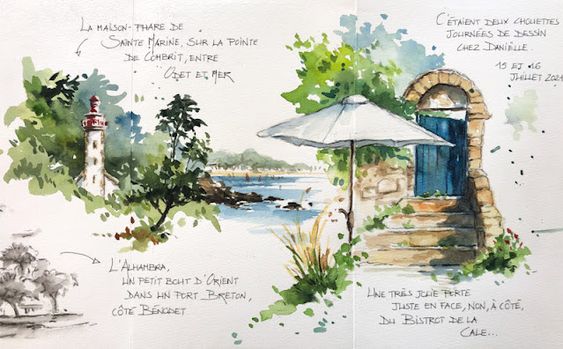 La maison-phare de
Sainte Marine, sur la pointe
de Combrit, entre
Odet et mer
C'étaient deux chouettes
journées de dessin
chez Danièlle.
15 et 16
Juillet 2021
L'Alhambra,
un petit bout d'Orient
dans un port Breton,
côté Bénodet
Une très jolie porte
juste en face, non, à côté,
du Bistrot de la
Cale...